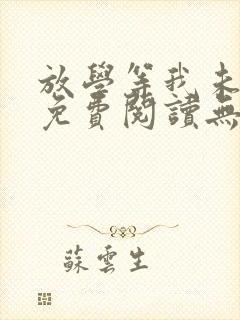 放學等我未
免費閱讀無
蘇雲生